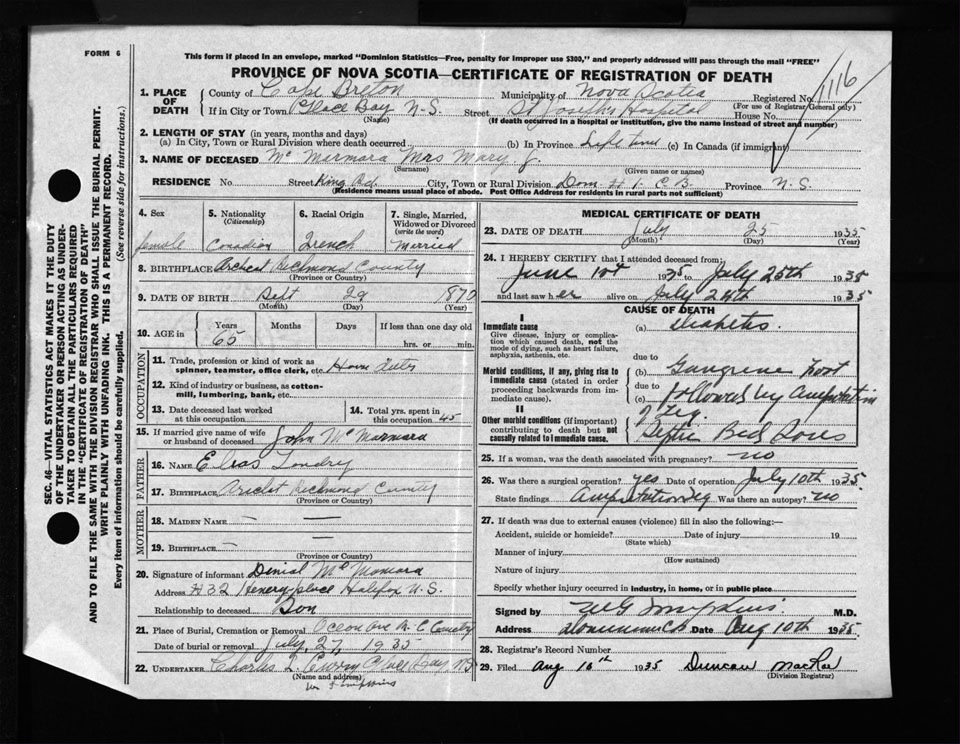 FORM 6
This form if placed in an envelope, marked "Dominion Statistics—Free, penalty for improper use $300," and properly addressed will pass through the mail "FREE"
PROVINCE OF NOVA SCOTIA—CERTIFICATE OF REGISTRATION OF DEATH
1116
1. PLACE OF DEATH County of Cape Breton Municipality of Nova Scotia Registered No.
(For use of Registrar General only)
If in City or Town Glace Bay N-S. Street St Josephs Hospital House No.
(Name) (If death occurred in a hospital or institution, give the name instead of street and number)
2. LENGTH OF STAY (in years, months and days)
(a) In City, Town or Rural Division where death occurred (b) In Province Life time (c) In Canada (if immigrant)
3. NAME OF DECEASED Mc Mamara Mrs Mary J.
(Surname) (Given name or names)
RESIDENCE No. Street King Rd. City, Town or Rural Division Dom # 1. C.B. Province N.S.
(Residence means usual place of abode. Post Office Address for residents in rural parts not sufficient)
SEC. 46—VITAL STATISTICS ACT MAKES IT THE DUTY
OF THE UNDERTAKER OR PERSON ACTING AS UNDER-
TAKER TO OBTAIN ALL THE PARTICULARS REQUIRED
IN THE "CERTIFICATE OF REGISTRATION OF DEATH"
AND TO FILE THE SAME WITH THE DIVISION REGISTRAR WHO SHALL ISSUE THE BURIAL PERMIT.
WRITE PLAINLY WITH UNFADING INK. THIS IS A PERMANENT RECORD.
Every item of information should be carefully supplied. (See reverse side for instructions.)
4. Sex 5. Nationality 6. Racial Origin 7. Single, Married,
(Citizenship) Widowed or Divorced
(write the word)
female Canadian French Married
8. BIRTHPLACE Archet Richmond County
(Province or Country)
9. DATE OF BIRTH Sept 29 1870
(Month) (Day) (Year)
10. AGE in Years Months Days If less than one day old
65 hrs. or min.
OCCUPATION
11. Trade, profession or kind of work as
spinner, teamster, office clerk, etc. House Duties
12. Kind of industry or business, as cotton-
mill, lumbering, bank, etc.
13. Date deceased last worked
at this occupation
14. Total yrs. spent in
this occupation 45
15. If married give name of wife
or husband of deceased John Mc Mamara
FATHER
16. NAME Elias Londry
17. BIRTHPLACE Arichet Richmond County
(Province or Country)
MOTHER
18. MAIDEN NAME — —
19. BIRTHPLACE — —
(Province or Country)
20. Signature of informant Denial Mc Mamara
Address #32 Henery place Halifax N.S.
Relationship to deceased Son
21. Place of Burial, Cremation or Removal Ocean Ave R.C Cemetry
Date of burial or removal July 27, 1935
22. UNDERTAKER Charles Curry Glace Bay NS
(Name and address)
MEDICAL CERTIFICATE OF DEATH
23. DATE OF DEATH July 25 1935
(Month) (Day) (Year)
24. I HEREBY CERTIFY that I attended deceased from:
June 1st 1935 to July 25th 1935
and last saw her alive on July 24th 1935
CAUSE OF DEATH
I
Immediate cause
Give disease, injury or complica-
tion which caused death, not the
mode of dying, such as heart failure,
asphyxia, asthenia, etc.
(a) Diabetis.
due to
Morbid conditions, if any, giving rise to
immediate cause (stated in order
proceeding backwards from im-
mediate cause).
(b) Gangrene Foot
due to
(c) followed by amputation
of leg.
II
Other morbid conditions (if important)
contributing to death but not
causally related to immediate cause.
Septic Bed Sores
25. If a woman, was the death associated with pregnancy? no
26. Was there a surgical operation? yes Date of operation July 10th 1935.
State findings Amputation leg Was there an autopsy? no
27. If death was due to external causes (violence) fill in also the following:—
Accident, suicide or homicide? Date of injury 19
(State which)
Manner of injury
(How sustained)
Nature of injury
Specify whether injury occurred in industry, in home, or in public place
Signed by Tompkins M.D.
Address Dominion C.B Date Aug 10th 1935
28. Registrar's Record Number
29. Filed Aug 16th 1935 Duncan MacRae
(Division Registrar)